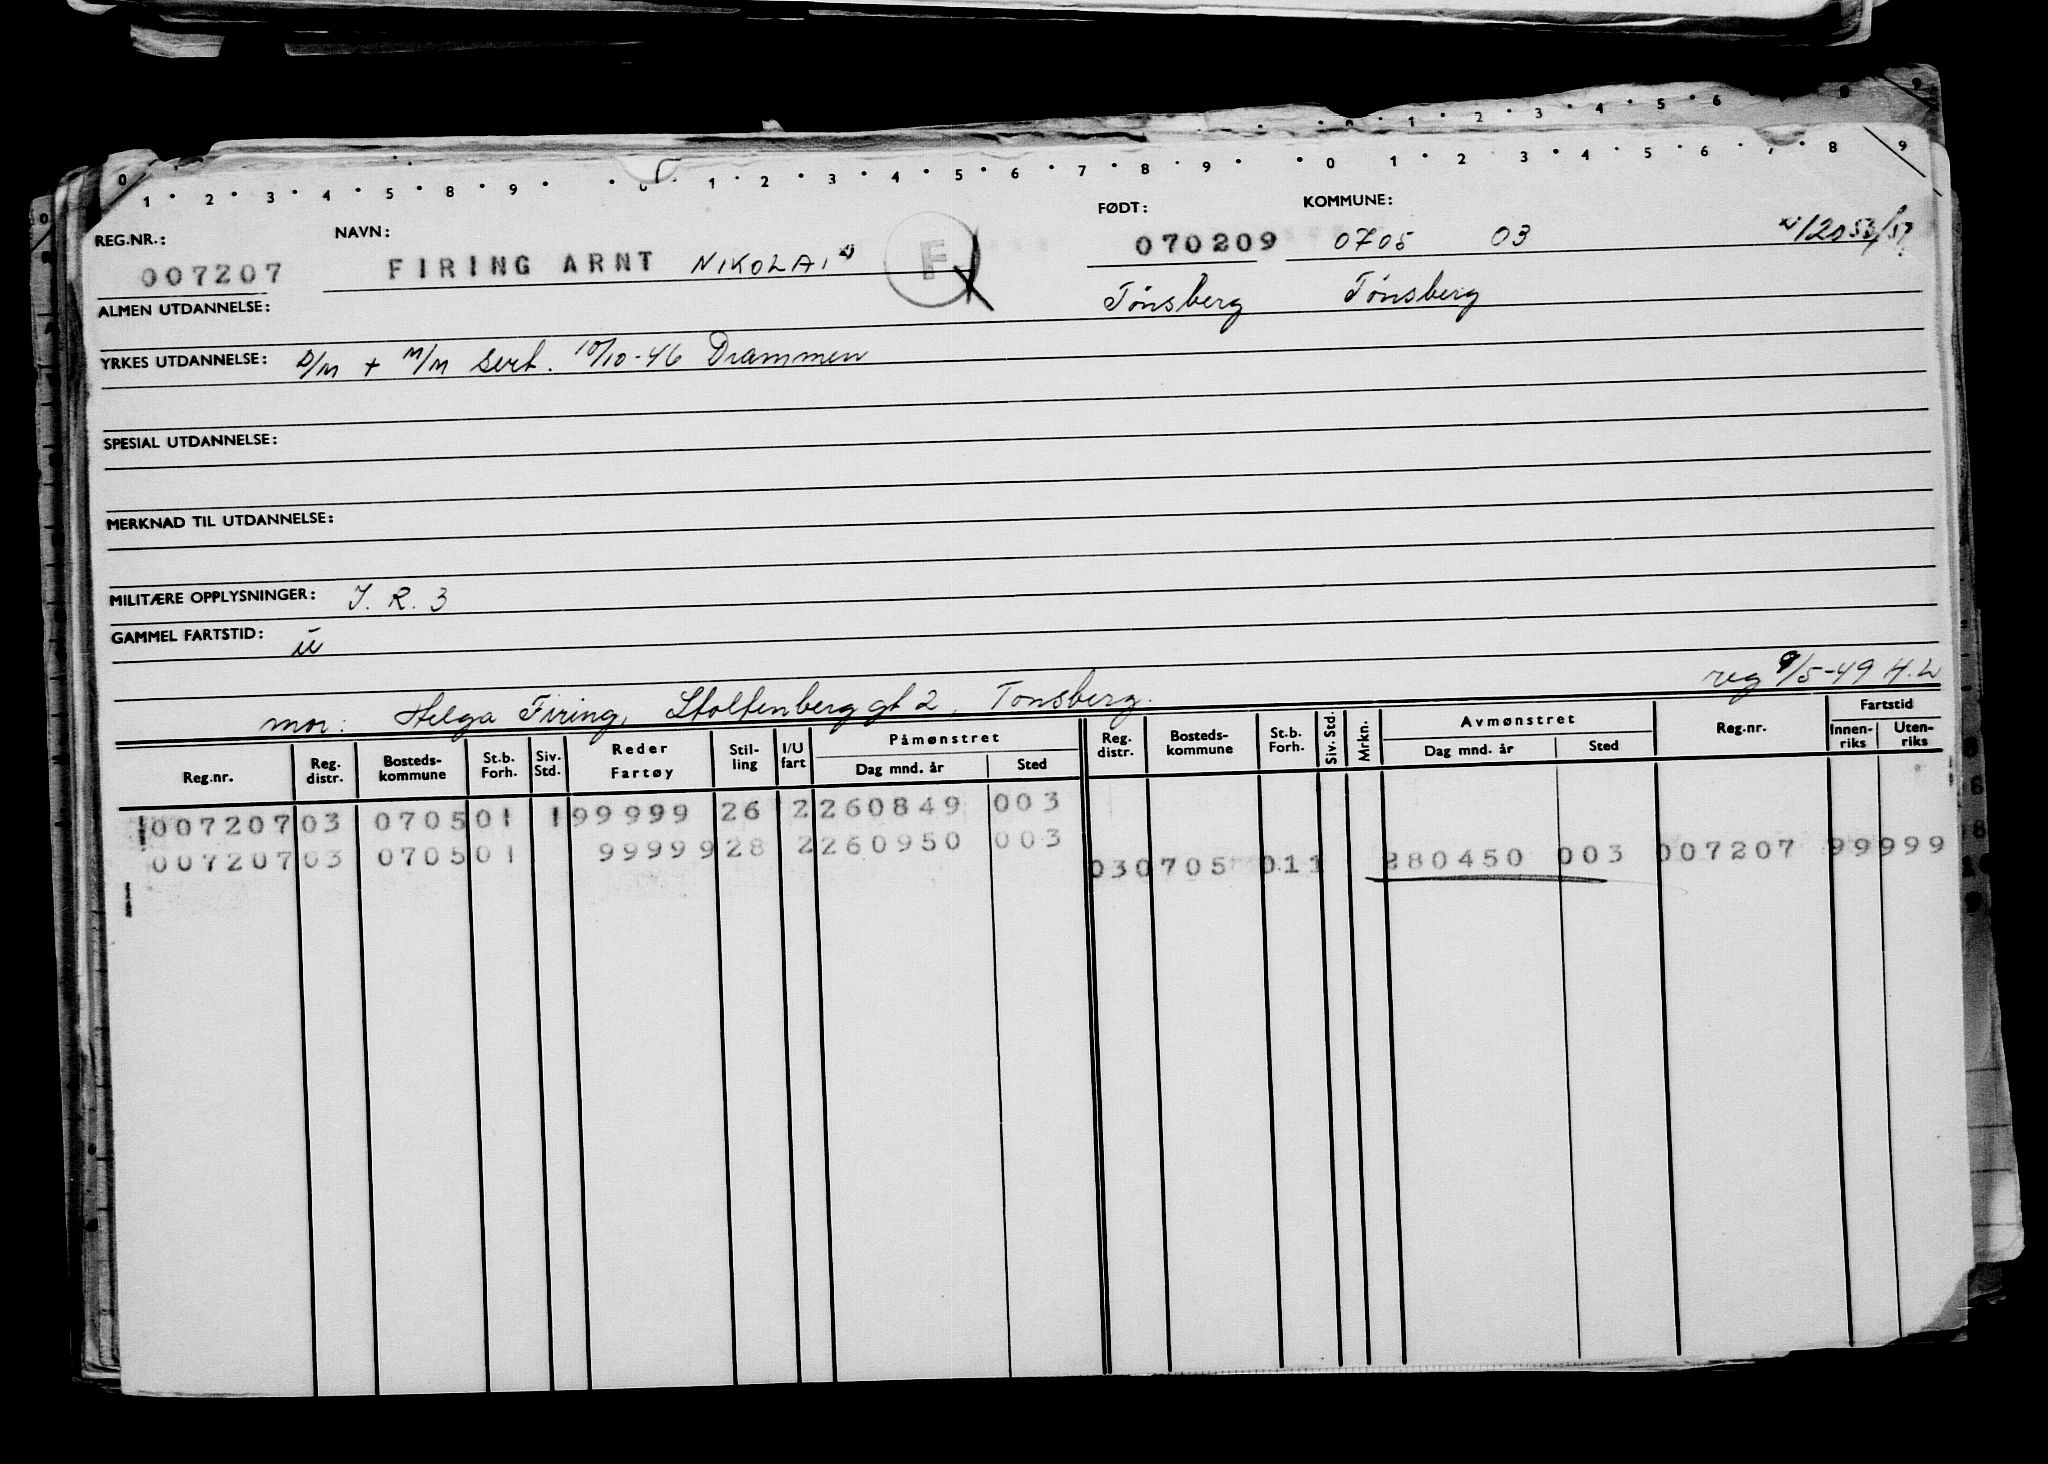 0 1 2 3 4 5 6 7 8 9 0 1 2 3 4 5 6 7 8 9 0 1 2 3 4 5 6 7 8 9
REG.NR.: NAVN: FØDT: KOMMUNE:
007207 FIRING ARNT NIKOLAI F 070209 0705 03
ALMEN UTDANNELSE: Tönsberg Tönsberg
YRKES UTDANNELSE: D/M + M/M Sert. 10/10-46 Drammen
SPESIAL UTDANNELSE:
MERKNAD TIL UTDANNELSE:
MILITÆRE OPPLYSNINGER: I. R. 3
GAMMEL FARTSTID: u
reg 9/5-49 H.L
mor: Helga Firing, Stoltenberg gt 2, Tonsberg.
Reg.nr. Reg. distr. Bosteds-kommune St.b. Forh. Siv. Std. Reder Fartøy Stil-ling I/U fart Påmønstret Dag mnd. år Sted Reg. distr. Bosteds-kommune St.b. Forh. Siv. Std. Mrkn. Avmønstret Dag mnd. år Sted Reg.nr. Fartstid Innen-riks Uten-riks
007207 03 0705 01 1 99999 26 2 260849 003
007207 03 0705 01 99999 28 2 260950 003
03 0705 011 280450 003 007207 99999